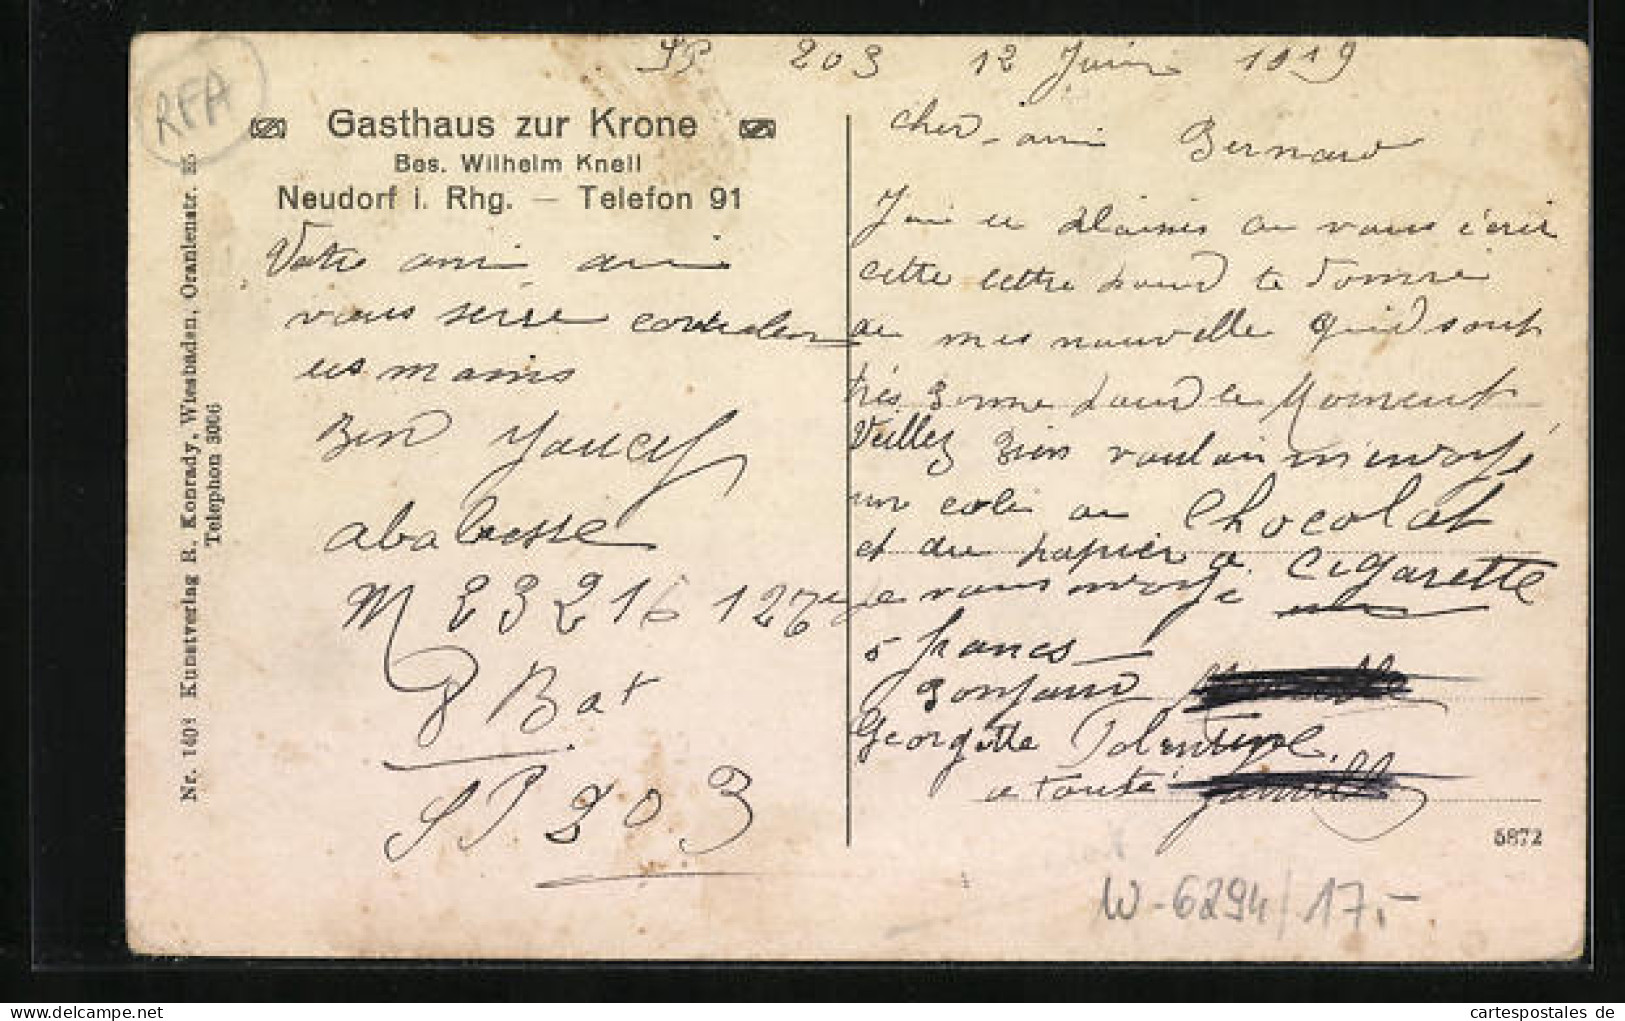 SP 203 12 Juin 1919
RFA
Gasthaus zur Krone
Bes. Wilhelm Knell
Neudorf i. Rhg. — Telefon 91
Votre ami
vous serre
les mains
Ben Youcef
M 23216 127
8 Bat
SP 203
cher - ami Bernard
J'ai le plaisir de vous écrir
cette lettre pour te donné
de mes nouvelle quid sont
très bonne pour le Moment
Veillez bien vouloir m'envoyé
un coli de chocolat
et du papier a cigarette
je vous envoyé
5 francs
bonjour
Georgette
a toute famille
Nr. 140 Kunstverlag R. Konrady, Wiesbaden, Oranienstr.
Telephon 3006
5872
W-6294/17,-
cartespostales de